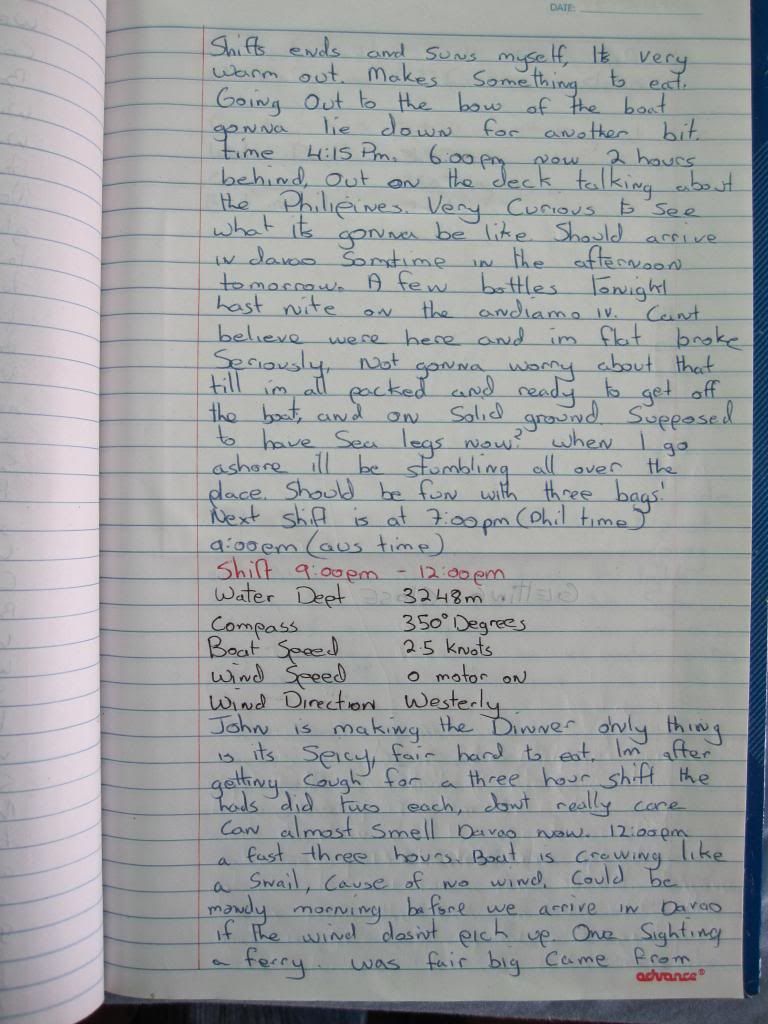 DATE:
Shifts ends and suns myself, Its very
warm out. Makes Something to eat.
Going Out to the bow of the boat
gonna lie down for another bit.
time 4:15 Pm. 6:00pm now 2 hours
behind. Out on the deck talking about
the Philipines. Very Curious to See
what its gonna be like. Should arrive
in davao Somtime in the afternoon
tomorrow. A few bottles tonight
Last nite on the andiamo iv. Cant
believe were here and im flat broke
Seriously, not gonna worry about that
till im all packed and ready to get off
the boat, and on Solid ground. Supposed
to have Sea legs now? When I go
ashore ill be stumbling all over the
place. Should be fun with three bags!
Next shift is at 7:00pm (Phil time)
9:00pm (aus time)
Shift 9:00pm - 12:00pm
Water Dept 3248m
Compass 350° Degrees
Boat Speed 2.5 Knots
Wind Speed 0 motor on
Wind Direction Westerly
John is making the Dinner only thing
is its Spicy, fair hard to eat. Im after
getting cough for a three hour shift the
lads did two each, dont really care
Can almost Smell Davao now. 12:00pm
a fast three hours. Boat is crawing like
a Snail, Cause of no wind. Could be
mondy morning before we arrive in Davao
if the wind dosint pich up. One Sighting
a ferry. was fair big Came from
advance®